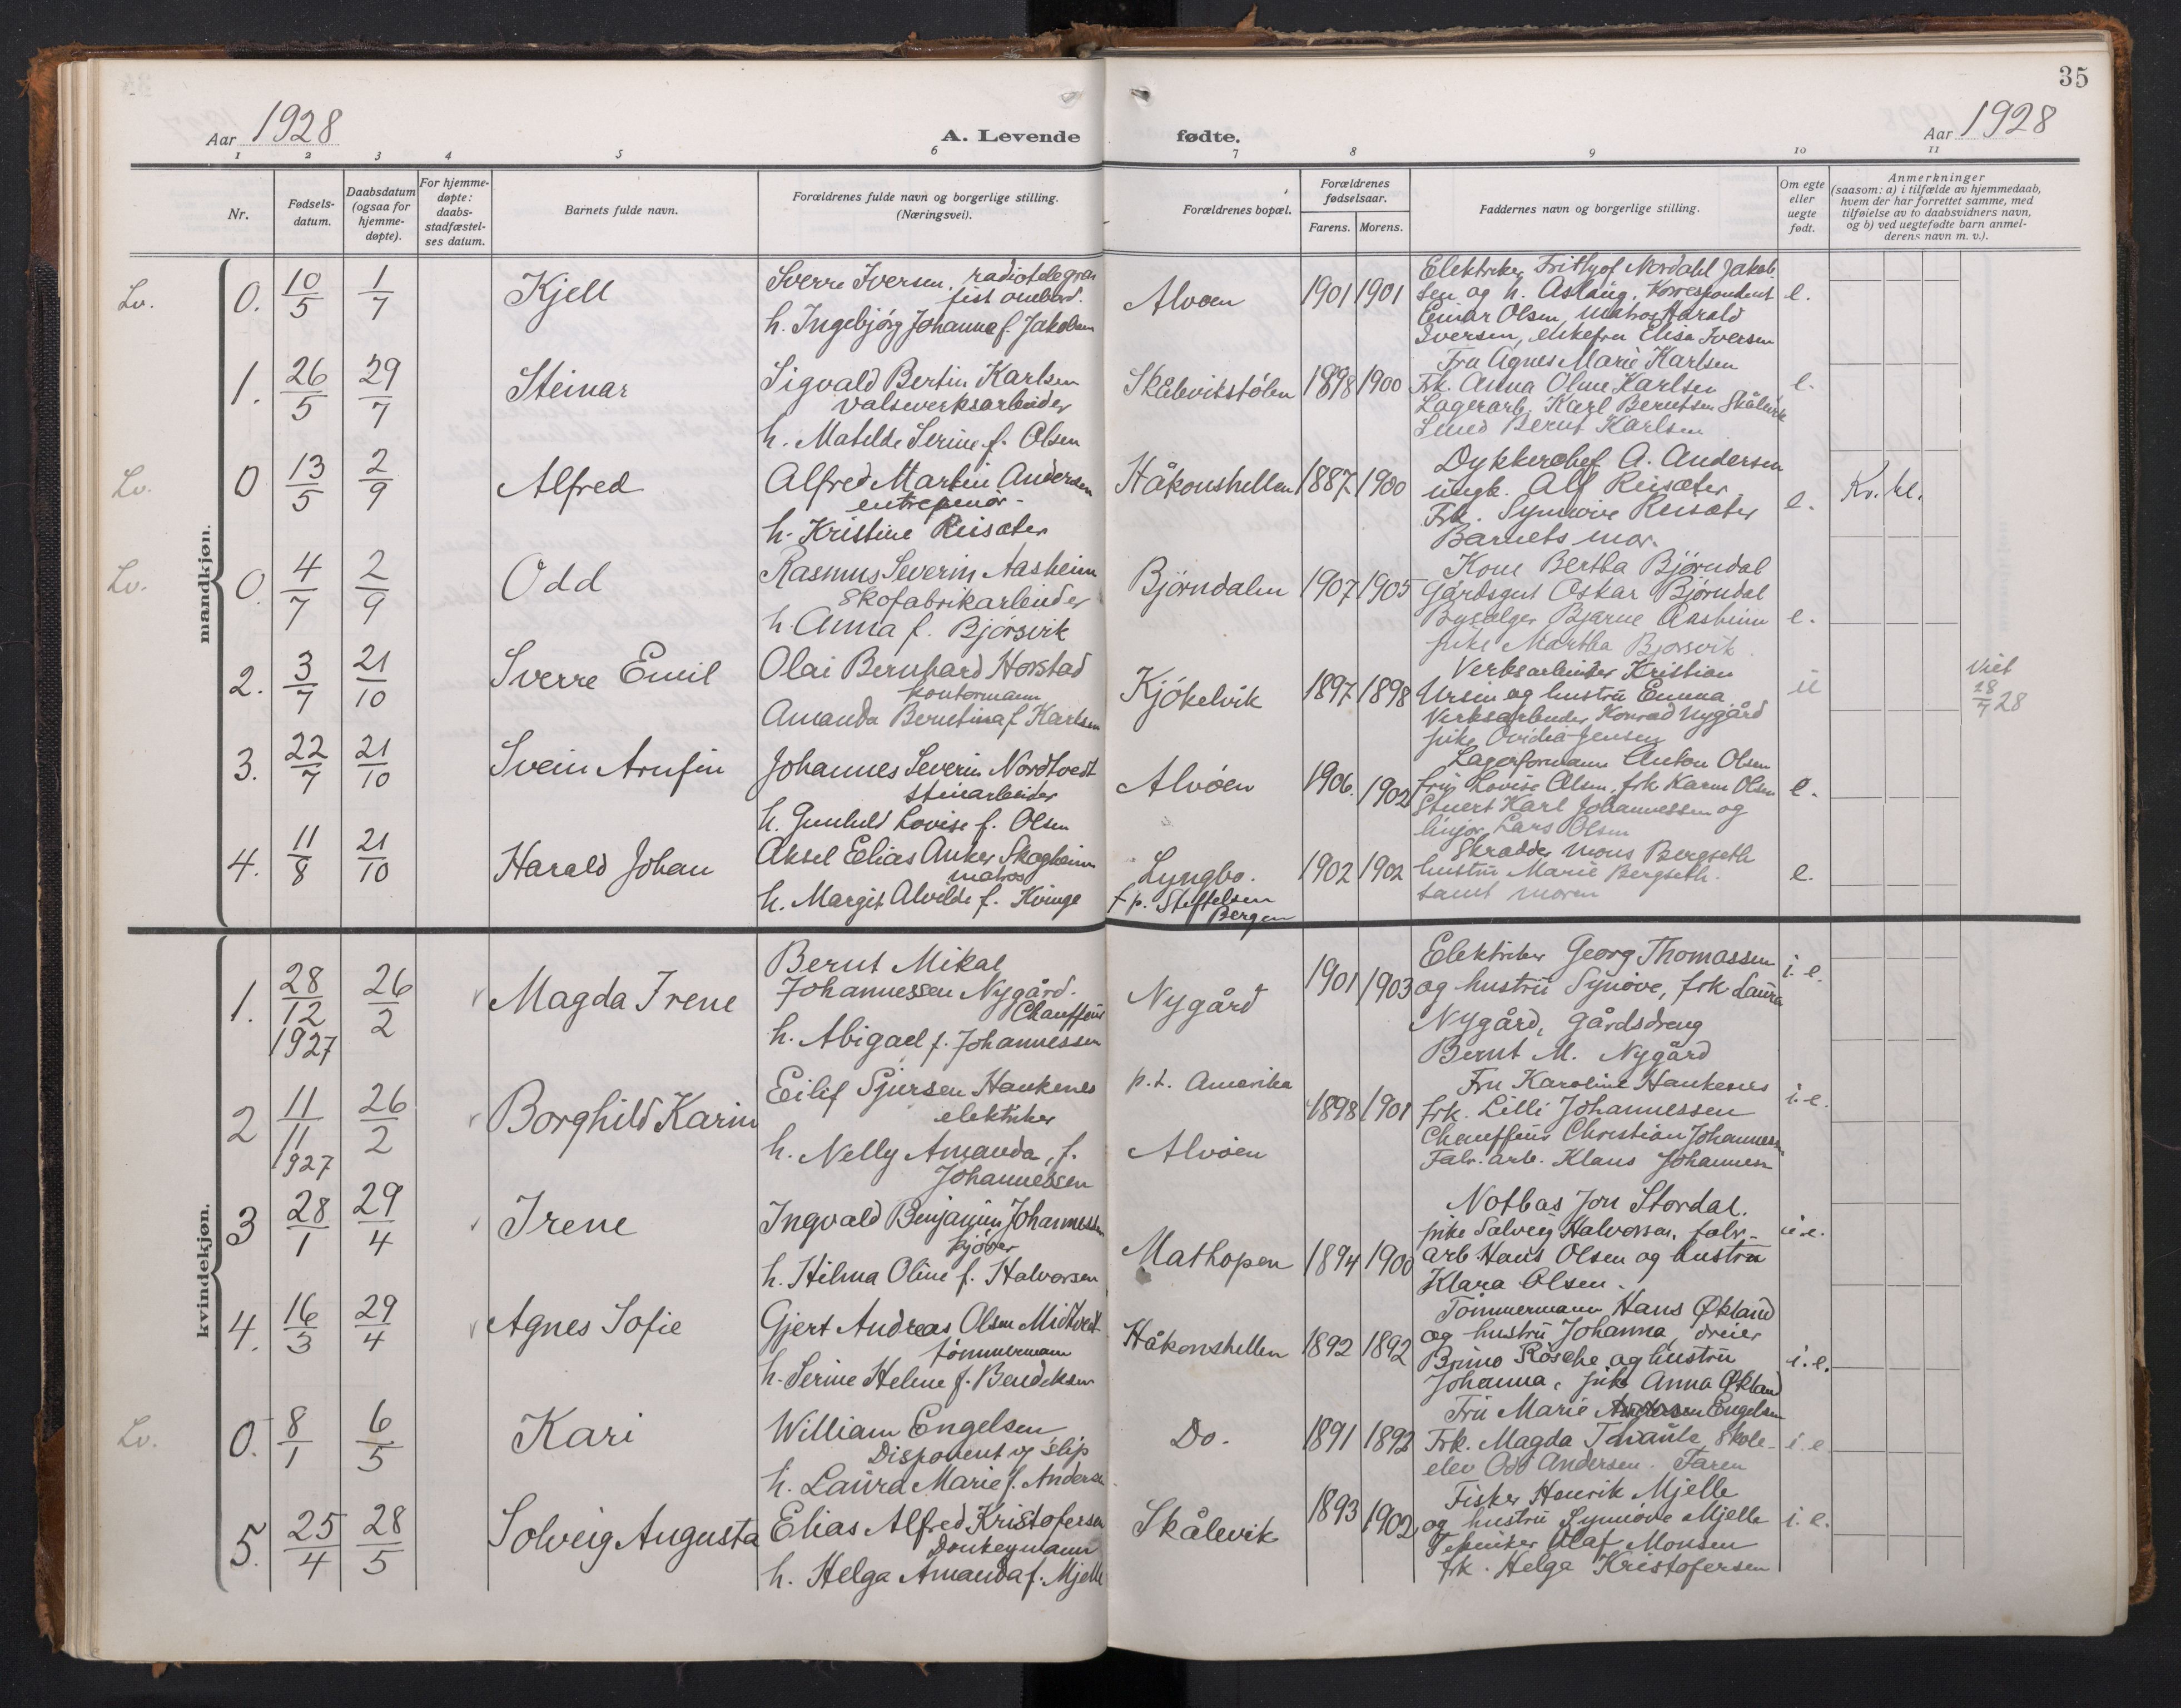 35
Aar 1928
A. Levende fødte.
Aar 1928
1 2 3 4 5 6 7 8 9 10 11
Nr.
Fødsels-
datum.
Daabsdatum
(ogsaa for
hjemme-
døpte).
For hjemme-
døpte:
daabs-
stadfæstel-
ses datum.
Barnets fulde navn.
Forældrenes fulde navn og borgerlige stilling.
(Næringsvei).
Forældrenes bopæl.
Forældrenes
fødselsaar.
Farens. Morens.
Faddernes navn og borgerlige stilling.
Om egte
eller
uegte
født.
Anmerkninger
(saasom: a) i tilfælde av hjemmedaab,
hvem der har forrettet samme, med
tilføielse av to daabsvidners navn,
og b) ved uegtefødte barn anmel-
derens navn m. v.).
mandkjøn.
Lv. 0. 10/5 1/7 Kjell
Sverre Iversen, radiotelegra
fist ombord.
h. Ingebjørg Johanna f. Jakobsen
Alvøen 1901 1901
Elektriker Frithjof Nordahl Jakob
sen og h. Aslaug, Korrespondent
Einar Olsen, Matros Harald
Iversen, enkefru Elisa Iversen
e.
1. 26/5 29/7 Steinar
Sigvald Bertin Karlsen
valseverksarbeider
h. Matilde Serine f. Olsen
Skålevikstølen 1898 1900
Fru Agnes Marie Karlsen
Frk. Anna Oline Karlsen
Lagerarb. Karl Berntsen Skålevik
Smed Bernt Karlsen
e.
Lv. 0 13/5 2/9 Alfred
Alfred Martin Andersen
entreprenør
h. Kristine Reisæter
Håkonshellen 1887 1900
Dykkerchef A. Andersen
ungk. Alf Reisæter
Frk. Synnøve Reisæter
Barnets mor.
e. Kv. kl.
Lv. 0. 4/7 2/9 Odd
Rasmus Severin Aasheim
Skofabrikarbeider
h. Anna f. Bjørsvik
Bjørndalen 1907 1905
Kone Bertha Bjørndal
Gårdsgut Oskar Bjørndal
Bysælger Bjarne Aasheim
pike Martha Bjørsvik.
e.
2. 3/7 21/10 Sverre Emil
Olai Bernhard Horstad
kontormann
Amanda Berntina f. Karlsen
Kjøkelvik 1897 1898
Verksarbeider Kristian
Ursin og hustru Emma
Verksarbeider Konrad Nygård
pike Ovidia Jensen
u
Viet
28/7 28
3. 22/7 21/10 Svein Arnfin
Johannes Severin Nordtvedt
stenarbeider
h. Gunhild Lovise f. Olsen
Alvøen 1906. 1902
Lagerformann Anton Olsen
fru Lovise Olsen, frk Karen Olsen
Stuert Karl Johannessen og
Lars Olsen
e.
4. 11/8 21/10 Harald Johan
Aksel Elias Anker Skogheim
matros
h. Margit Alvilde f. Kvinge
Lyngbo.
f p. Stiftelsen
Bergen
1902 1902
Skrædder Mons Bergseth
hustru Marie Bergseth.
samt moren
e.
kvindekjøn.
1. 28/12 1927 26/2 Magda Irene
Bernt Mikal
Johannessen Nygård.
Chauffeur
h. Abigael f. Johannessen
Nygård 1901 1903
Elektriker Georg Thomassen
og hustru Synøve, frk Laura
Nygård, gårdsdreng
Bernt M. Nygård
i. e.
2 11/11 1927 26/2 Borghild Karin
Eilif Sjursen Haukenes
elektriker
h. Nelly Amanda, f.
Johannessen
p.t. Amerika
Alvøen
1898 1901
Fru Karoline Haukenes
frk. Lilli Johannessen
Chauffeur Christian Johannessen
Fabr. arb. Klaus Johannesn
i. e.
3 28/1 29/4 Irene
Ingvald Benjamin Johannessen
h. Hilma Oline f. Halvorsen
Mathopen 1894 1900
Notbas Jon Stordal.
pike Solveig Halvorsen, fabr-
arb. Hans Olsen og hustru
Klara Olsen.
i e.
4. 16/3 29/4 Agnes Sofie
Gjert Andreas Olsen Midtvedt
tømmermann
h. Serine Helene f. Bendiksen
Håkonshellen 1892 1892
Tømmermann Hans Økland
og hustru Johanna, dreier
Bruno Rösche og hustru
Johanna, pike Anna Økland
i. e.
Lv. 0. 8/1 6/5 Kari
William Engelsen
Disponent v. slip
h. Laura Marie f. Andersen
Do. 1891 1892
Fru Marie Engelsen
Frk. Magda Skole-
elev Odd Andersen. Faren
i e
5. 25/4 28/5 Solveig Augusta
Elias Alfred Kristofersen
Donkeymann
h. Helga Amanda f. Mjelle
Skålevik 1893 1902
Fisker Henrik Mjelle
og hustru Synnøve Mjelle
Tekniker Olaf Monsen
frk. Helga Kristofersen
i. e.